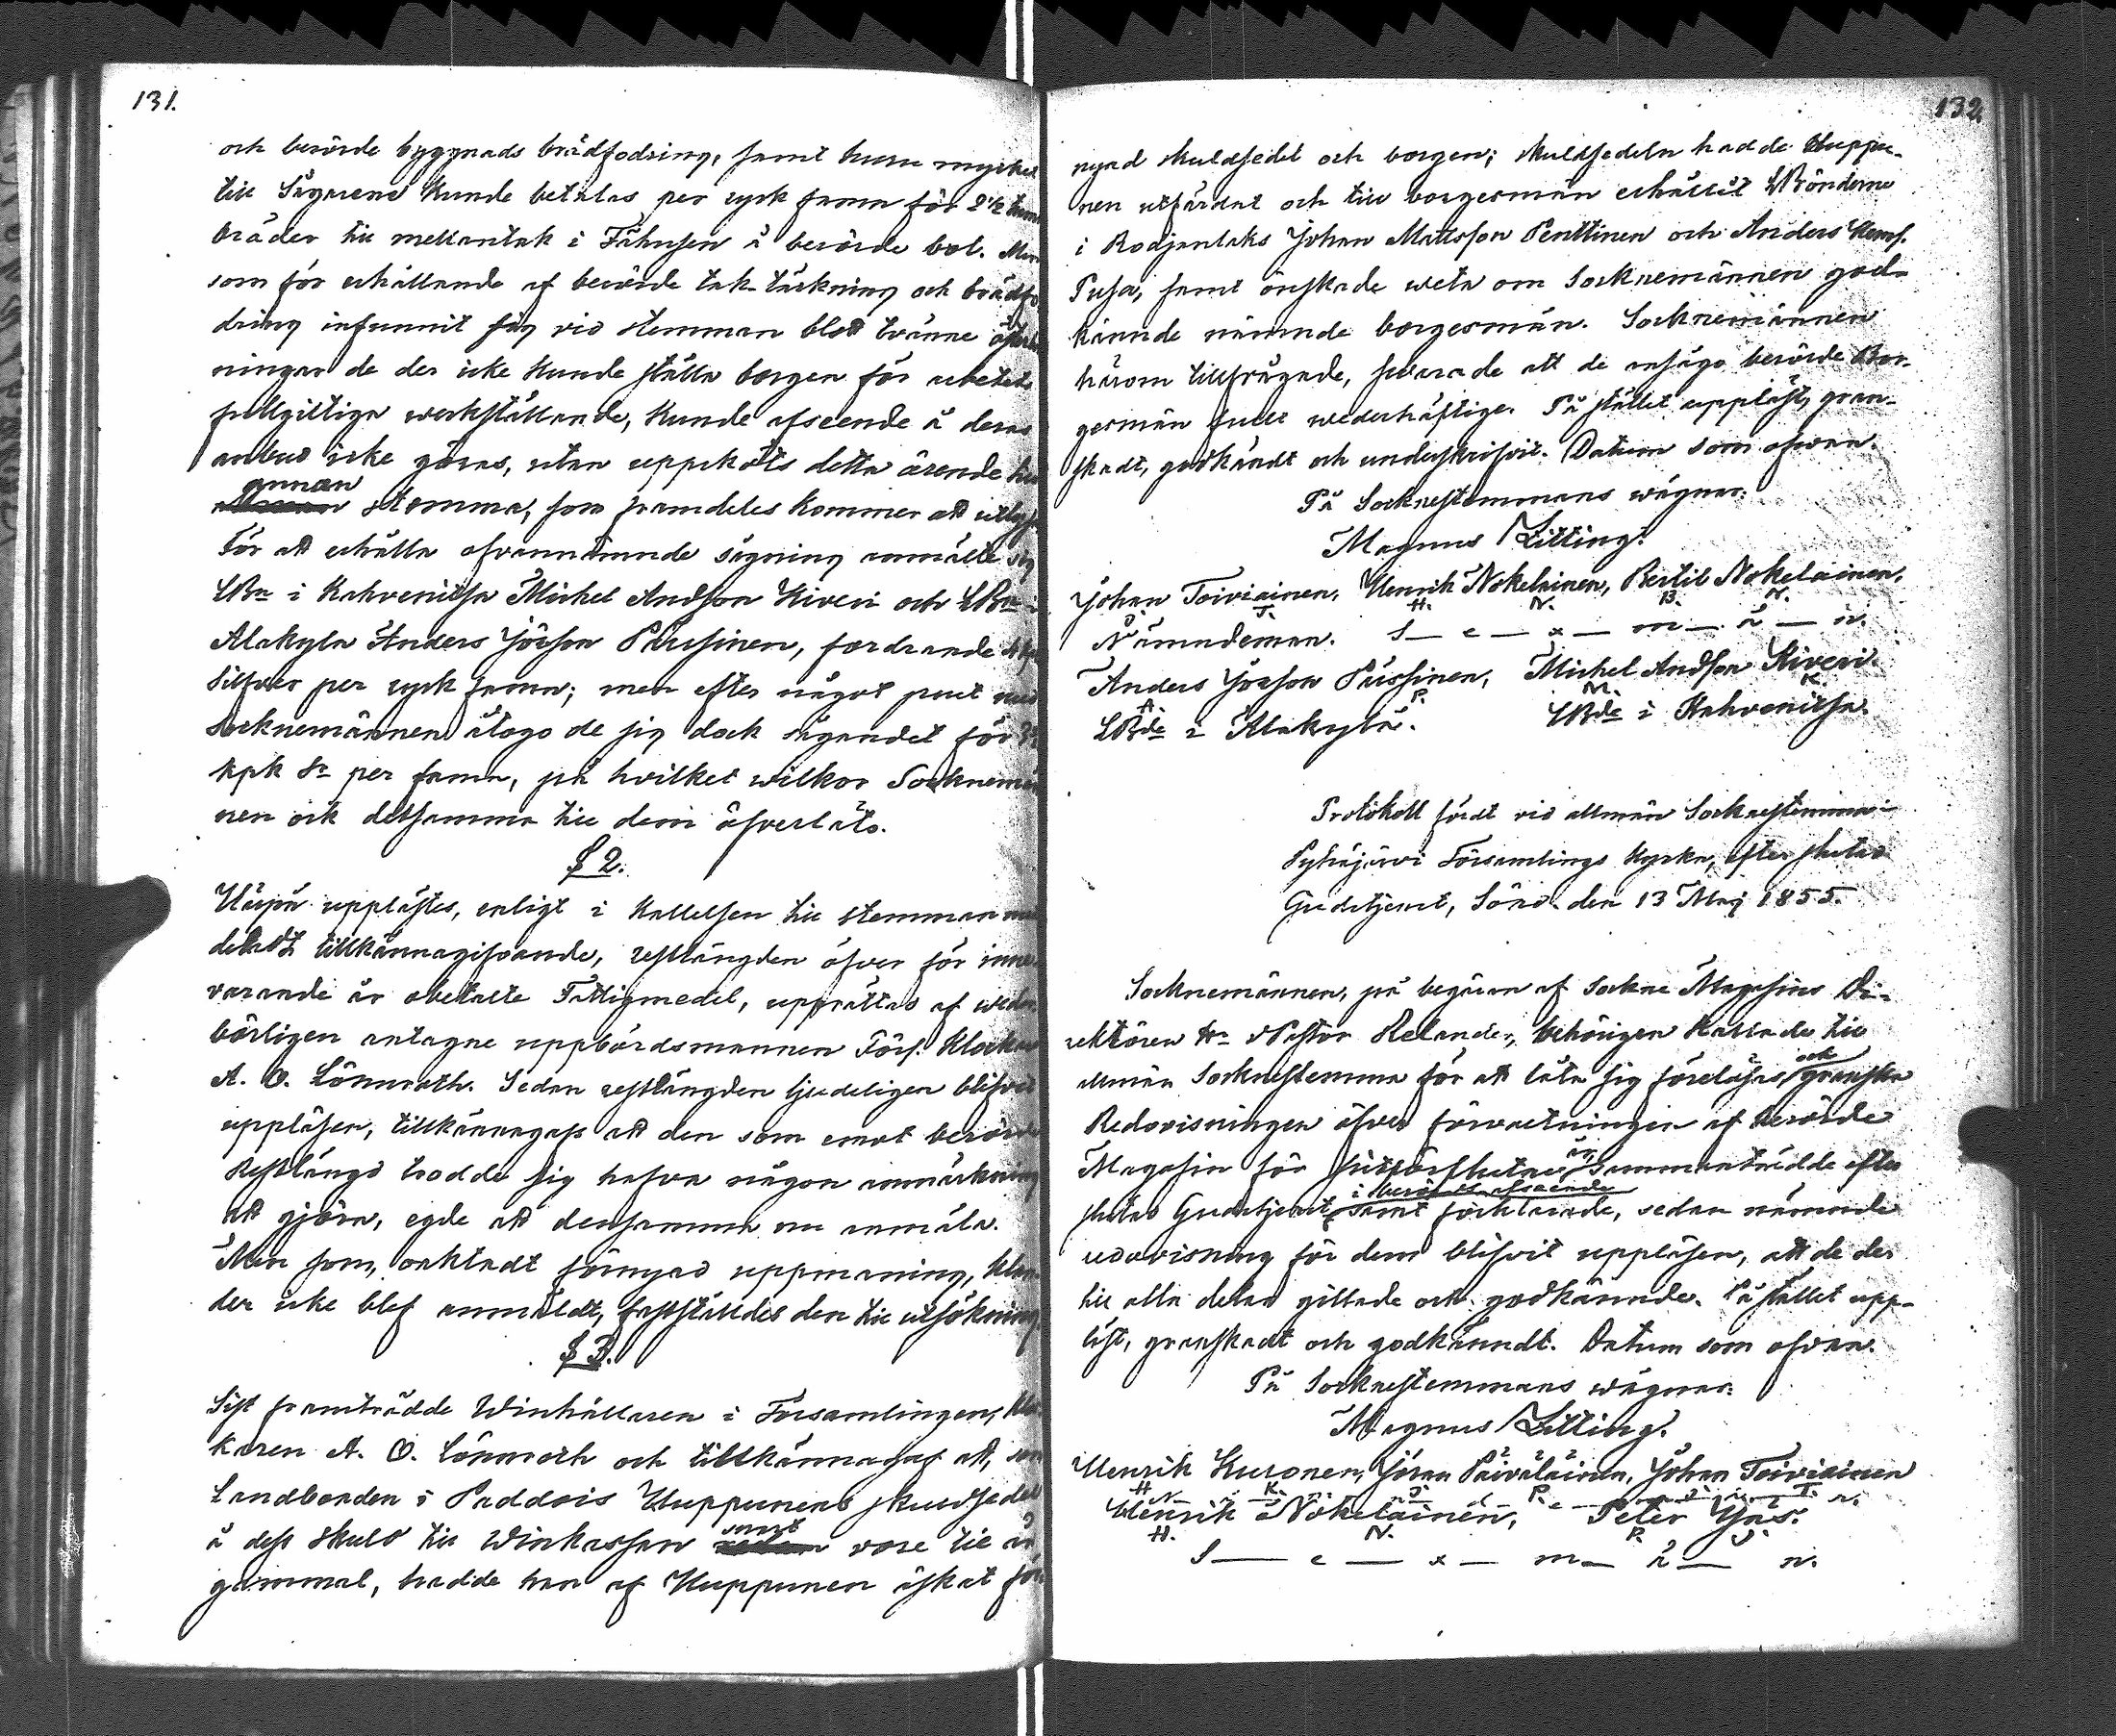 131.
och berörde byggnads brädfodring, samt huru mycket
till Sågarena kunde betalas per rysk famn för 2 1/2 tums
bräder till mellantak i Fähusen å berörde bol. Men
som för erhållande af berörde tak-täckning och brädfo-
dring infunnit sig vid stemman blott tvänne
ningar de der icke kunde ställa borgen för arbetets
fullgiltiga werkställande, kunde afseende å deras
anbud icke göras, utan uppsköts detta ärende till
annan
stemma, som framdeles kommer att utlysas
För att erhålla ofvannämnde sågning anmälte sig
LBn i Kahvenitsa Michel Andsson Kiveri och LBn i
Alakylä Anders Jörsson Pärssinen, fordrande
Silfver per rysk famn; men efter något prut med
socknemännen åtogo de sig dock sågandet för
kpk Sr per famn, på hvilket wilkor Socknemän-
nen ock detsamma till dem öfverläto.
§ 2.
Härpå upplästes, enligt i kallelsen till stemman med-
deladt tillkännagifvande, restlängden öfver för inne-
varande år obetalte Fattigmedel, upprättas af weder-
börligen antagne uppbördsmannen Förs. Klockar
A. O. Lönnroth. Sedan restlängden ljudeligen blifvit
uppläsen, tillkännagafs att den som emot berörde
Restlängd trodde sig hafva någon anmärkning
att gjöra, egde att densamma nu anmäla.
Men som, oaktadt förnyad uppmaning, klan-
der icke blef anmäldt, fastställdes den till utsökning.
§ 3.
Sist framträdde Winhållaren i Församlingen, Kloc-
karen A. O. Lönnroth och tillkännagaf att, som
Landbonden i Paddois Huppunens skuldsedel
samt
å dess skuld till Winkassan vore till år
gammal, hadde han af Huppunen äskat för-
132.
nyad skuldsedel och borgen; skuldsedeln hadde Huppu-
nen utfärdat och till borgesmän erhållit LBönderne
i Rodjenlaks Johan Mattsson Penttinen och Anders Hens.
Pusa, samt önskade weta om Socknemännen god-
kännde nämnde borgesmän. Socknemännen
härom tillfrågade, svarade att de ansågo berörde Bor-
gesmän fullt wederhäftige. På stället uppläst, gran-
skadt, godkändt och underskrifvit. Datum som ofvan.
På Socknestemmans wägnar:
Magnus Litting.
Johan Toiviainen, Henrik Nokelainen, Bertil Nokelainen,
J. T. H. N. B. N.
Nämndeman. S— e — x — m — ä — n.
Anders Jörsson Pärssinen, Michel Andsson Kiveri.
A. P. M. K.
LBde i Alakylä. LBde i Kahvenitsa.
Protokoll fördt vid allmän Socknestemma i
Pyhäjärvi Församlings Kyrka, efter slutad
Gudstjenst, Sönd. den 13 Maj 1855.
Socknemännen, på begäran af Sockne Magasins Di-
rektören Hr Pastor Helander, behörigen kallade till
ock
allmän Socknestemma för att låta sig föreläsas granska
Redovisningen öfver förvaltningen af berörde
år,
Magasin för sistförflutne sammanträdde efter
i berörde afseende
slutad Gudstjenst samt förklarade, sedan nämnde
redovisning för dem blifvit uppläsen, att de der
till alla delar gillade och godkännde. På stället upp-
läst, granskadt och godkänndt. Datum som ofvan.
På Socknestemmans wägnar:
Magnus Litting.
Henrik Kuronen, Jöran Päiväläinen, Johan Toiviainen
H. K. J. P. J. T.
Henrik Nokelainen, Peter Yns.
H. N. P. J.
S— e — x — m — ä — n.